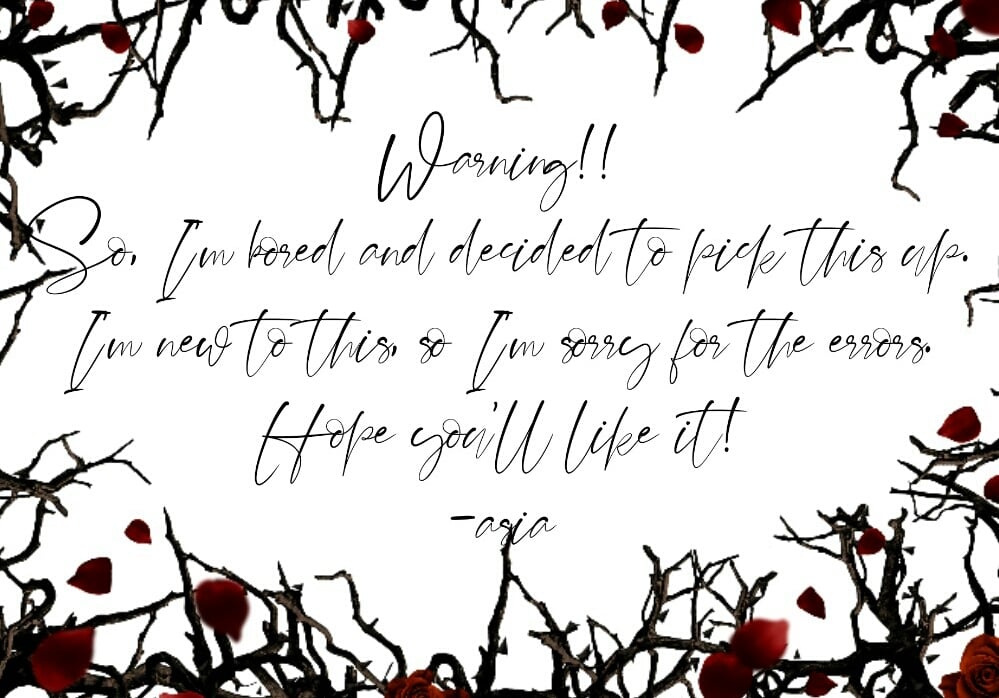 Warning!!
So, I'm bored and decided to pick this up.
I'm new to this, so I'm sorry for the errors.
Hope you'll like it!
-asia